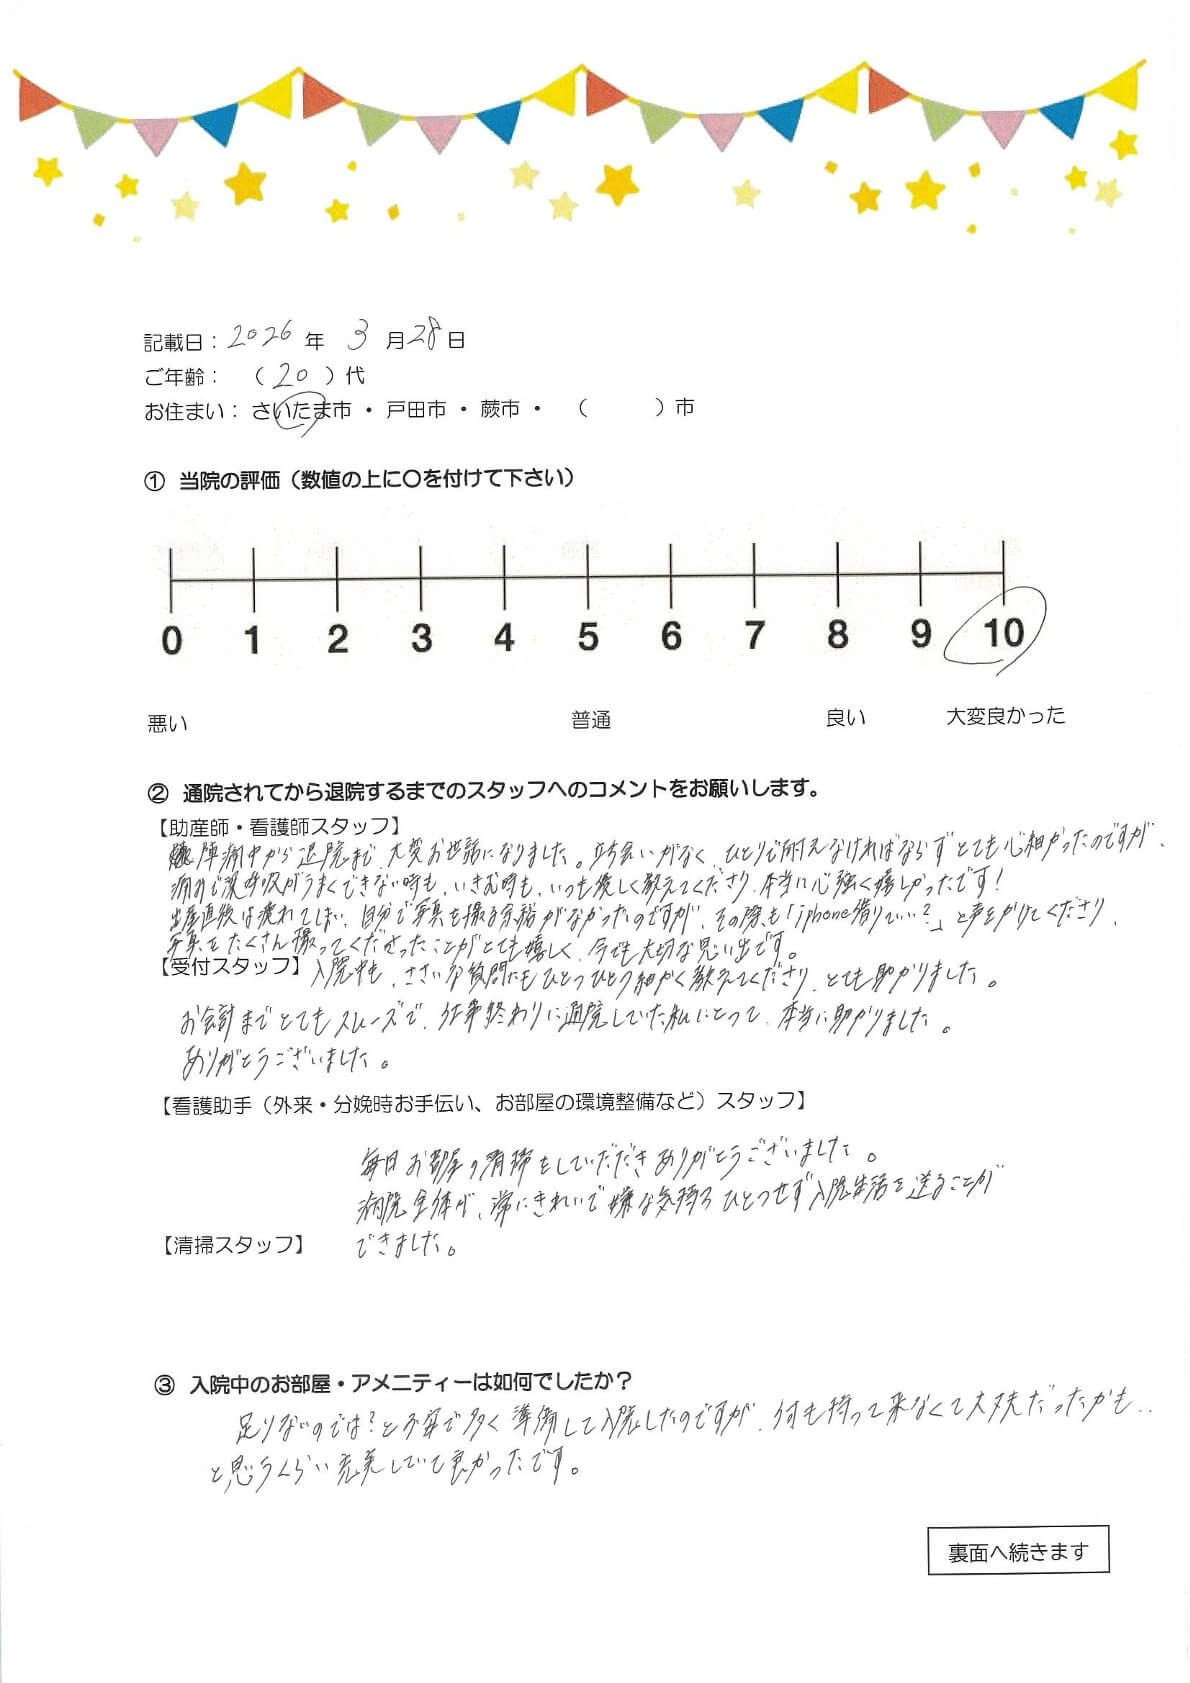 記載日：2026 年 3 月 28 日
ご年齢： （ 20 ）代
お住まい： さいたま市 ・ 戸田市 ・ 蕨市 ・ （ ）市
① 当院の評価（数値の上に〇を付けて下さい）
0 1 2 3 4 5 6 7 8 9 10
悪い 普通 良い 大変良かった
② 通院されてから退院するまでのスタッフへのコメントをお願いします。
【助産師・看護師スタッフ】
陣痛中から退院まで、大変お世話になりました。立ち会いがなく、ひとりで耐えなければならずとても心細かったのですが、
痛みで深呼吸がうまくできない時も、いきむ時も、いつも優しく教えてくださり、本当に心強く嬉しかったです！
出産直後は疲れてしまい、自分で写真を撮る余裕がなかったのですが、その際も「iphone借りていい？」と声をかけてくださり、
写真をたくさん撮ってくださったことがとても嬉しく、今でも大切な思い出です。
【受付スタッフ】 入院中も、ささいな質問にもひとつひとつ細かく教えてくださり、とても助かりました。
お会計までとてもスムーズで、仕事終わりに通院していた私にとって、本当に助かりました。
ありがとうございました。
【看護助手（外来・分娩時お手伝い、お部屋の環境整備など）スタッフ】
毎日お部屋の清掃をしていただきありがとうございました。
病院全体が、常にきれいで嫌な気持ちひとつせず入院生活を送ることが
【清掃スタッフ】 できました。
③ 入院中のお部屋・アメニティーは如何でしたか？
足りないのでは？と不安で多く準備して入院したのですが、何も持って来なくて大丈夫だったかも..
と思うくらい充実していて良かったです。
裏面へ続きます